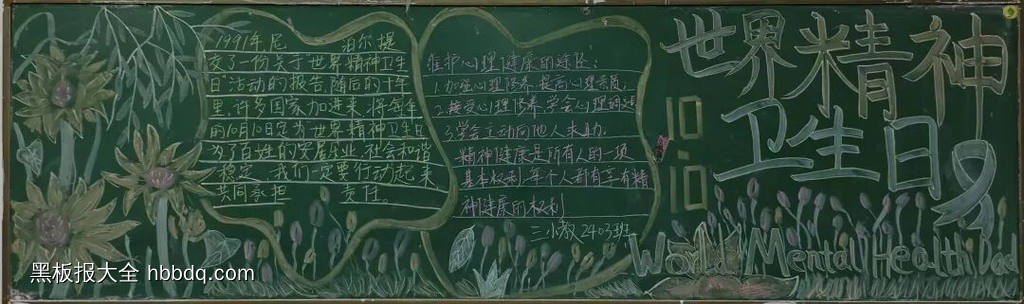 1991年尼 泊尔提
交了一份关于世界精神卫生
日活动的报告,随后的十年
里,许多国家加进来,将每年
的10月10日定为世界精神卫生日
为了百姓的安居乐业,社会和谐
稳定,我们一定要行动起来
共同承担 责任。
维护心理健康的途径:
1.加强心理修养,提高心理素质;
2.接受心理 学会心理
3.学会主动向他人求助。
精神健康是所有人的一项
基本权利,每个人都有享有精
神健康的权利
三小教2403班
世界精神
卫生日
10.10
World Mental Health Day
黑板报大全 hbbdq.com